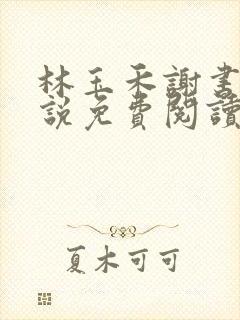 林玉禾謝書
說免費閱讀
夏木可可